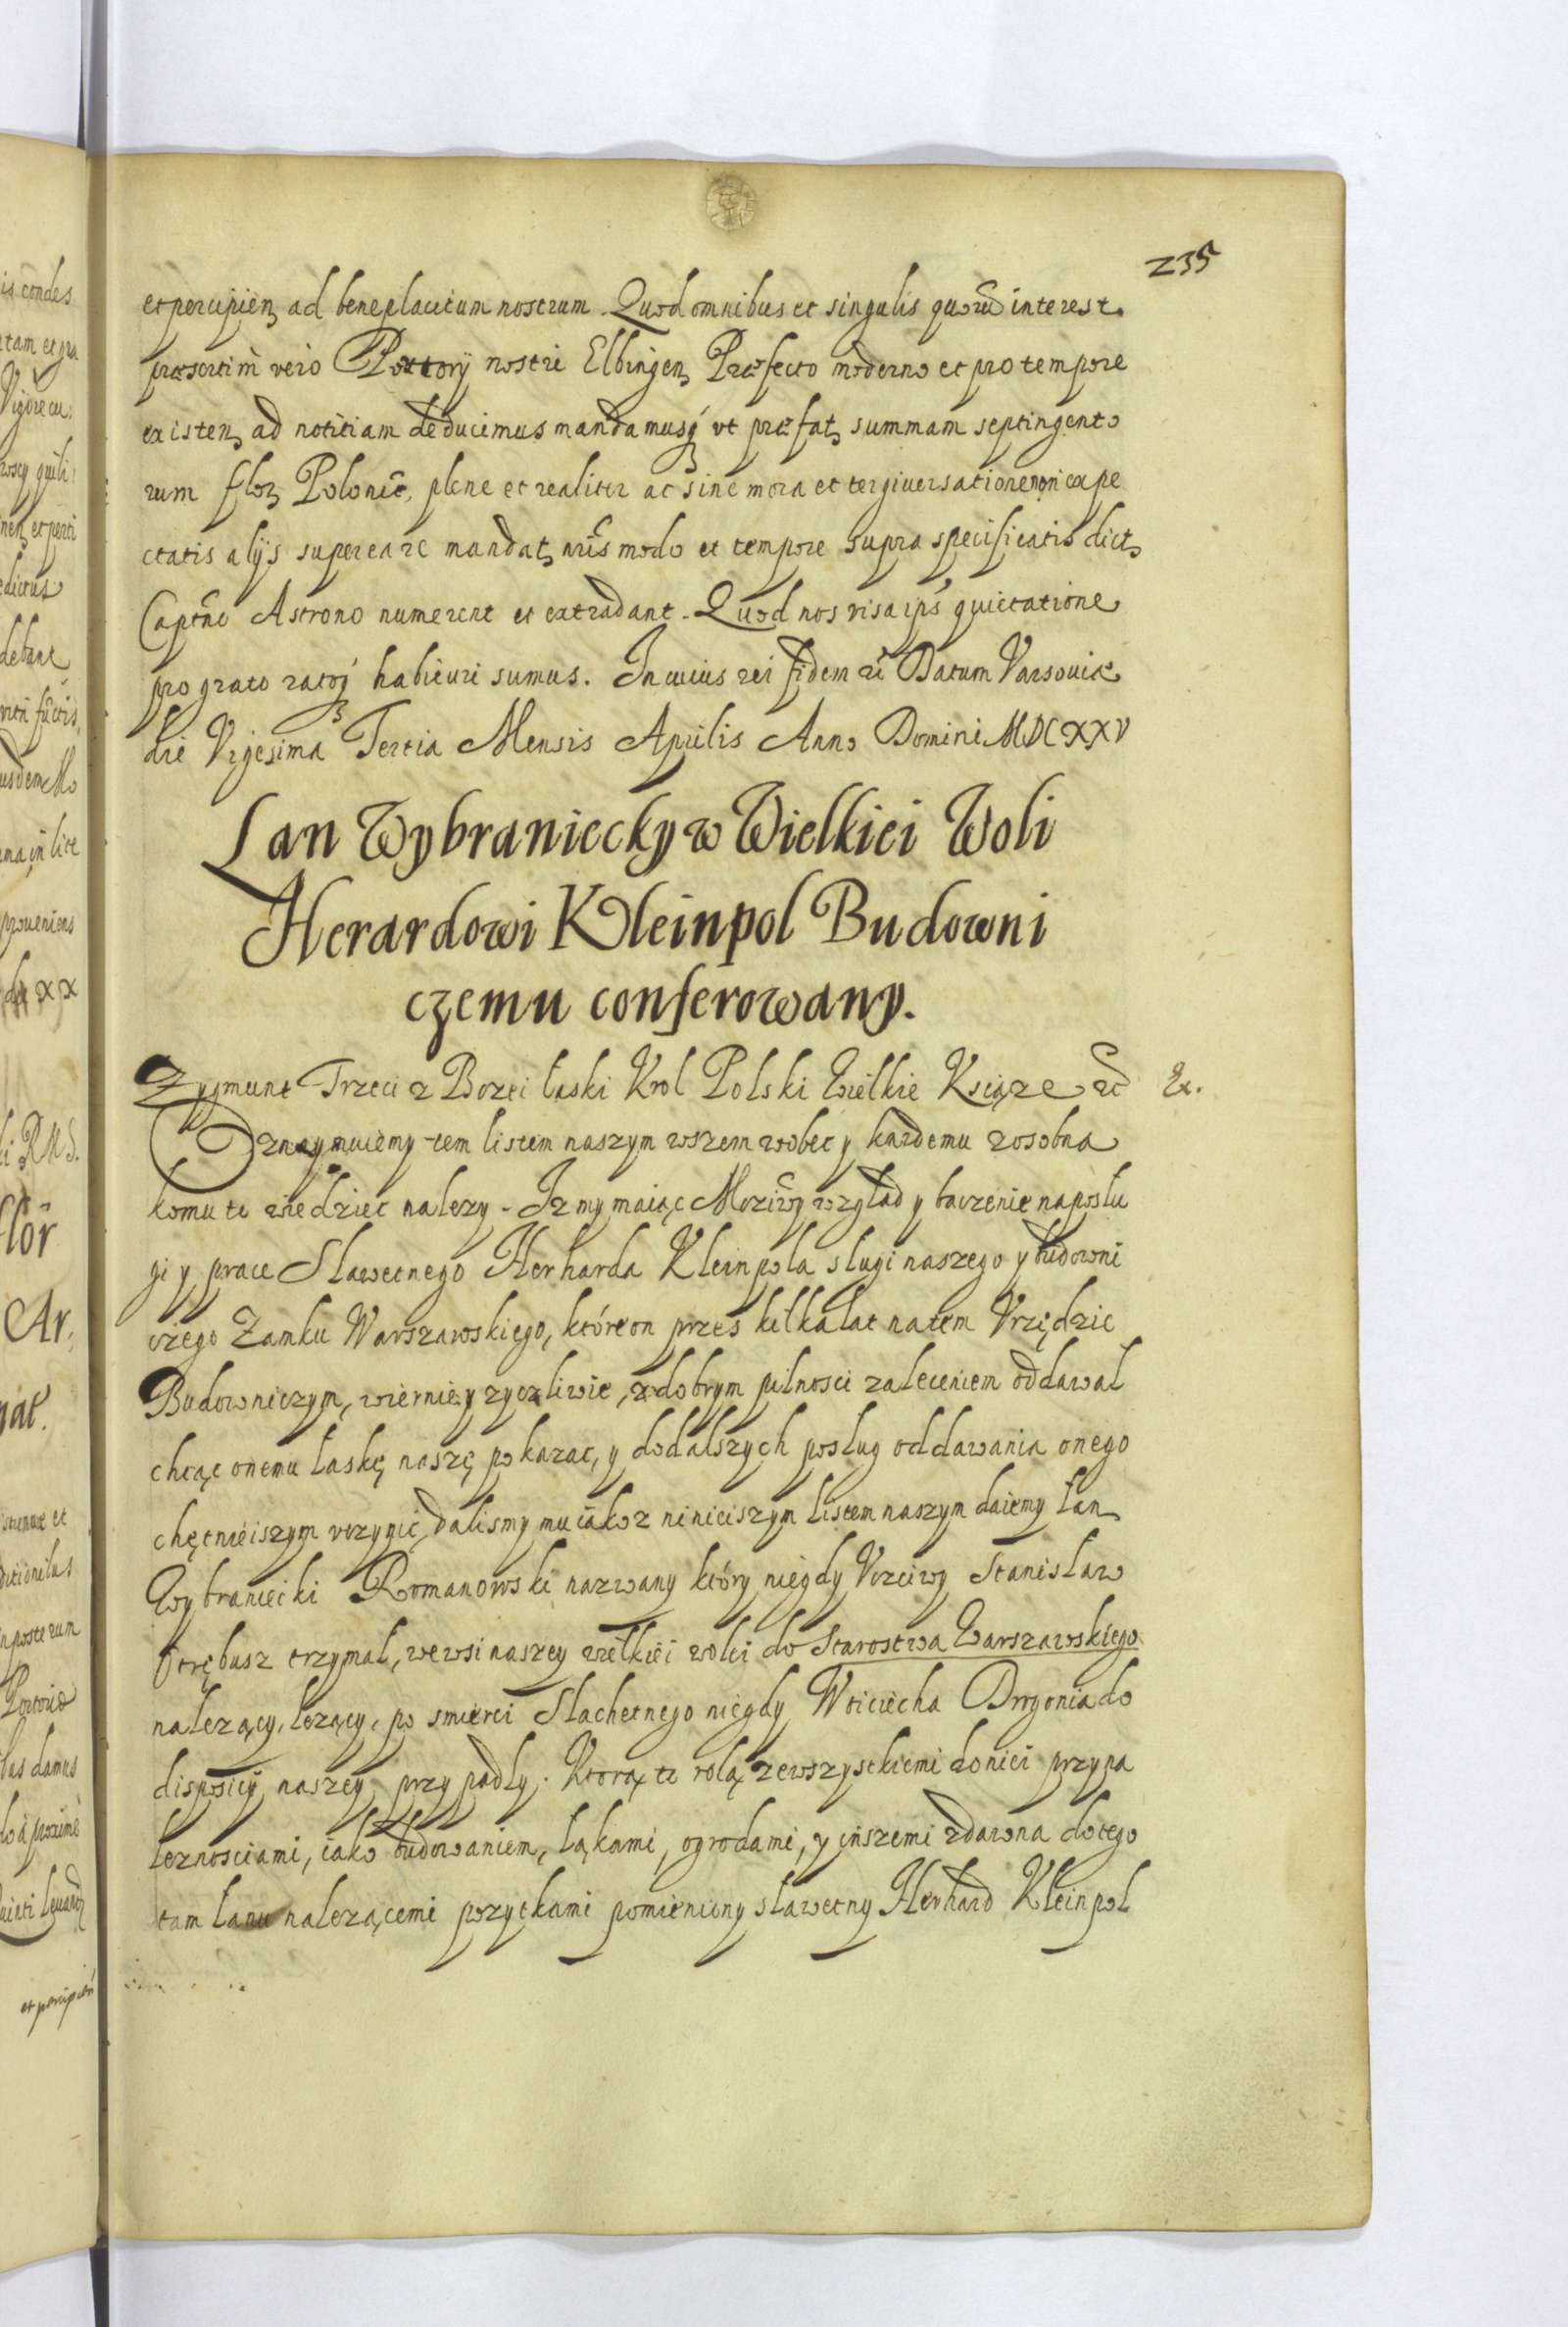 235
et percipien ad beneplacitum nostrum. Quod omnibus et singulis quorū interest.
præsertim vero Portorÿ nostri Elbingen Præfecto moderno et pro tempore
existen ad notitiam deducimus mandamusq ut præfat summam septingento
rum flor Polonic, plene et realiter ac sine mora et tergiversatione non expe
ctatis alÿs super ea re mandat nris modo et tempore supra specificatis dict
Captno Astrono numerent et extradant. Quod nos visa ips quietatione
pro grato ratoq habituri sumus. In cuius rei fidem etc Datum Varsoviæ
die Vigesima Tertia Mensis Aprilis Anno Domini MDCXXV
Lan Wybraniecky w Wielkiei Woli
Herardowi Kleinpol Budowni
czemu conferowany.
Zygmunt Trzeci z Bozei łaski Krol Polski Wielkie Książe etc &.
Oznaymuiemy tem listem naszym wszem wobec y kazdemu zosobna
komu to wiedziec nalezy. Iz my maiąc wzgląd y baczenie na poslu
gi y prace Slawetnego Herharda Kleinpola slugi naszego y budowni
czego Zamku Warszawskiego, które on przes kilka lat na tem Vrzędzie
Budowniczym, wiernie y zyczliwie, z dobrym pilnosci zaleceniem oddawal
chcąc onemu laskę naszę pokazac, y do dalszych poslug oddawania onego
chętnieiszym vczynić, dalismy mu iakoz ninieiszym listem naszym daiemy lan
Wybraniecki Romanowski nazwany który niegdy Vczciwy Stanislaw
Otrębusz trzymal, we wsi naszey wielkiei woli do Starostwa Warszawskiego
nalezący, lezący, po smierci Slachetnego niegdy Woiciecha Drygonia do
disposicÿ naszey przypadly. Ktorą to rolą ze wszystkiemi do niei przyna
leznosciami, iako budowaniem, ląkami, ogrodami, y inszemi zdawna do tego
tam lanu nalezącemi pozytkami pomieniony slawetny Herhard Kleinpol